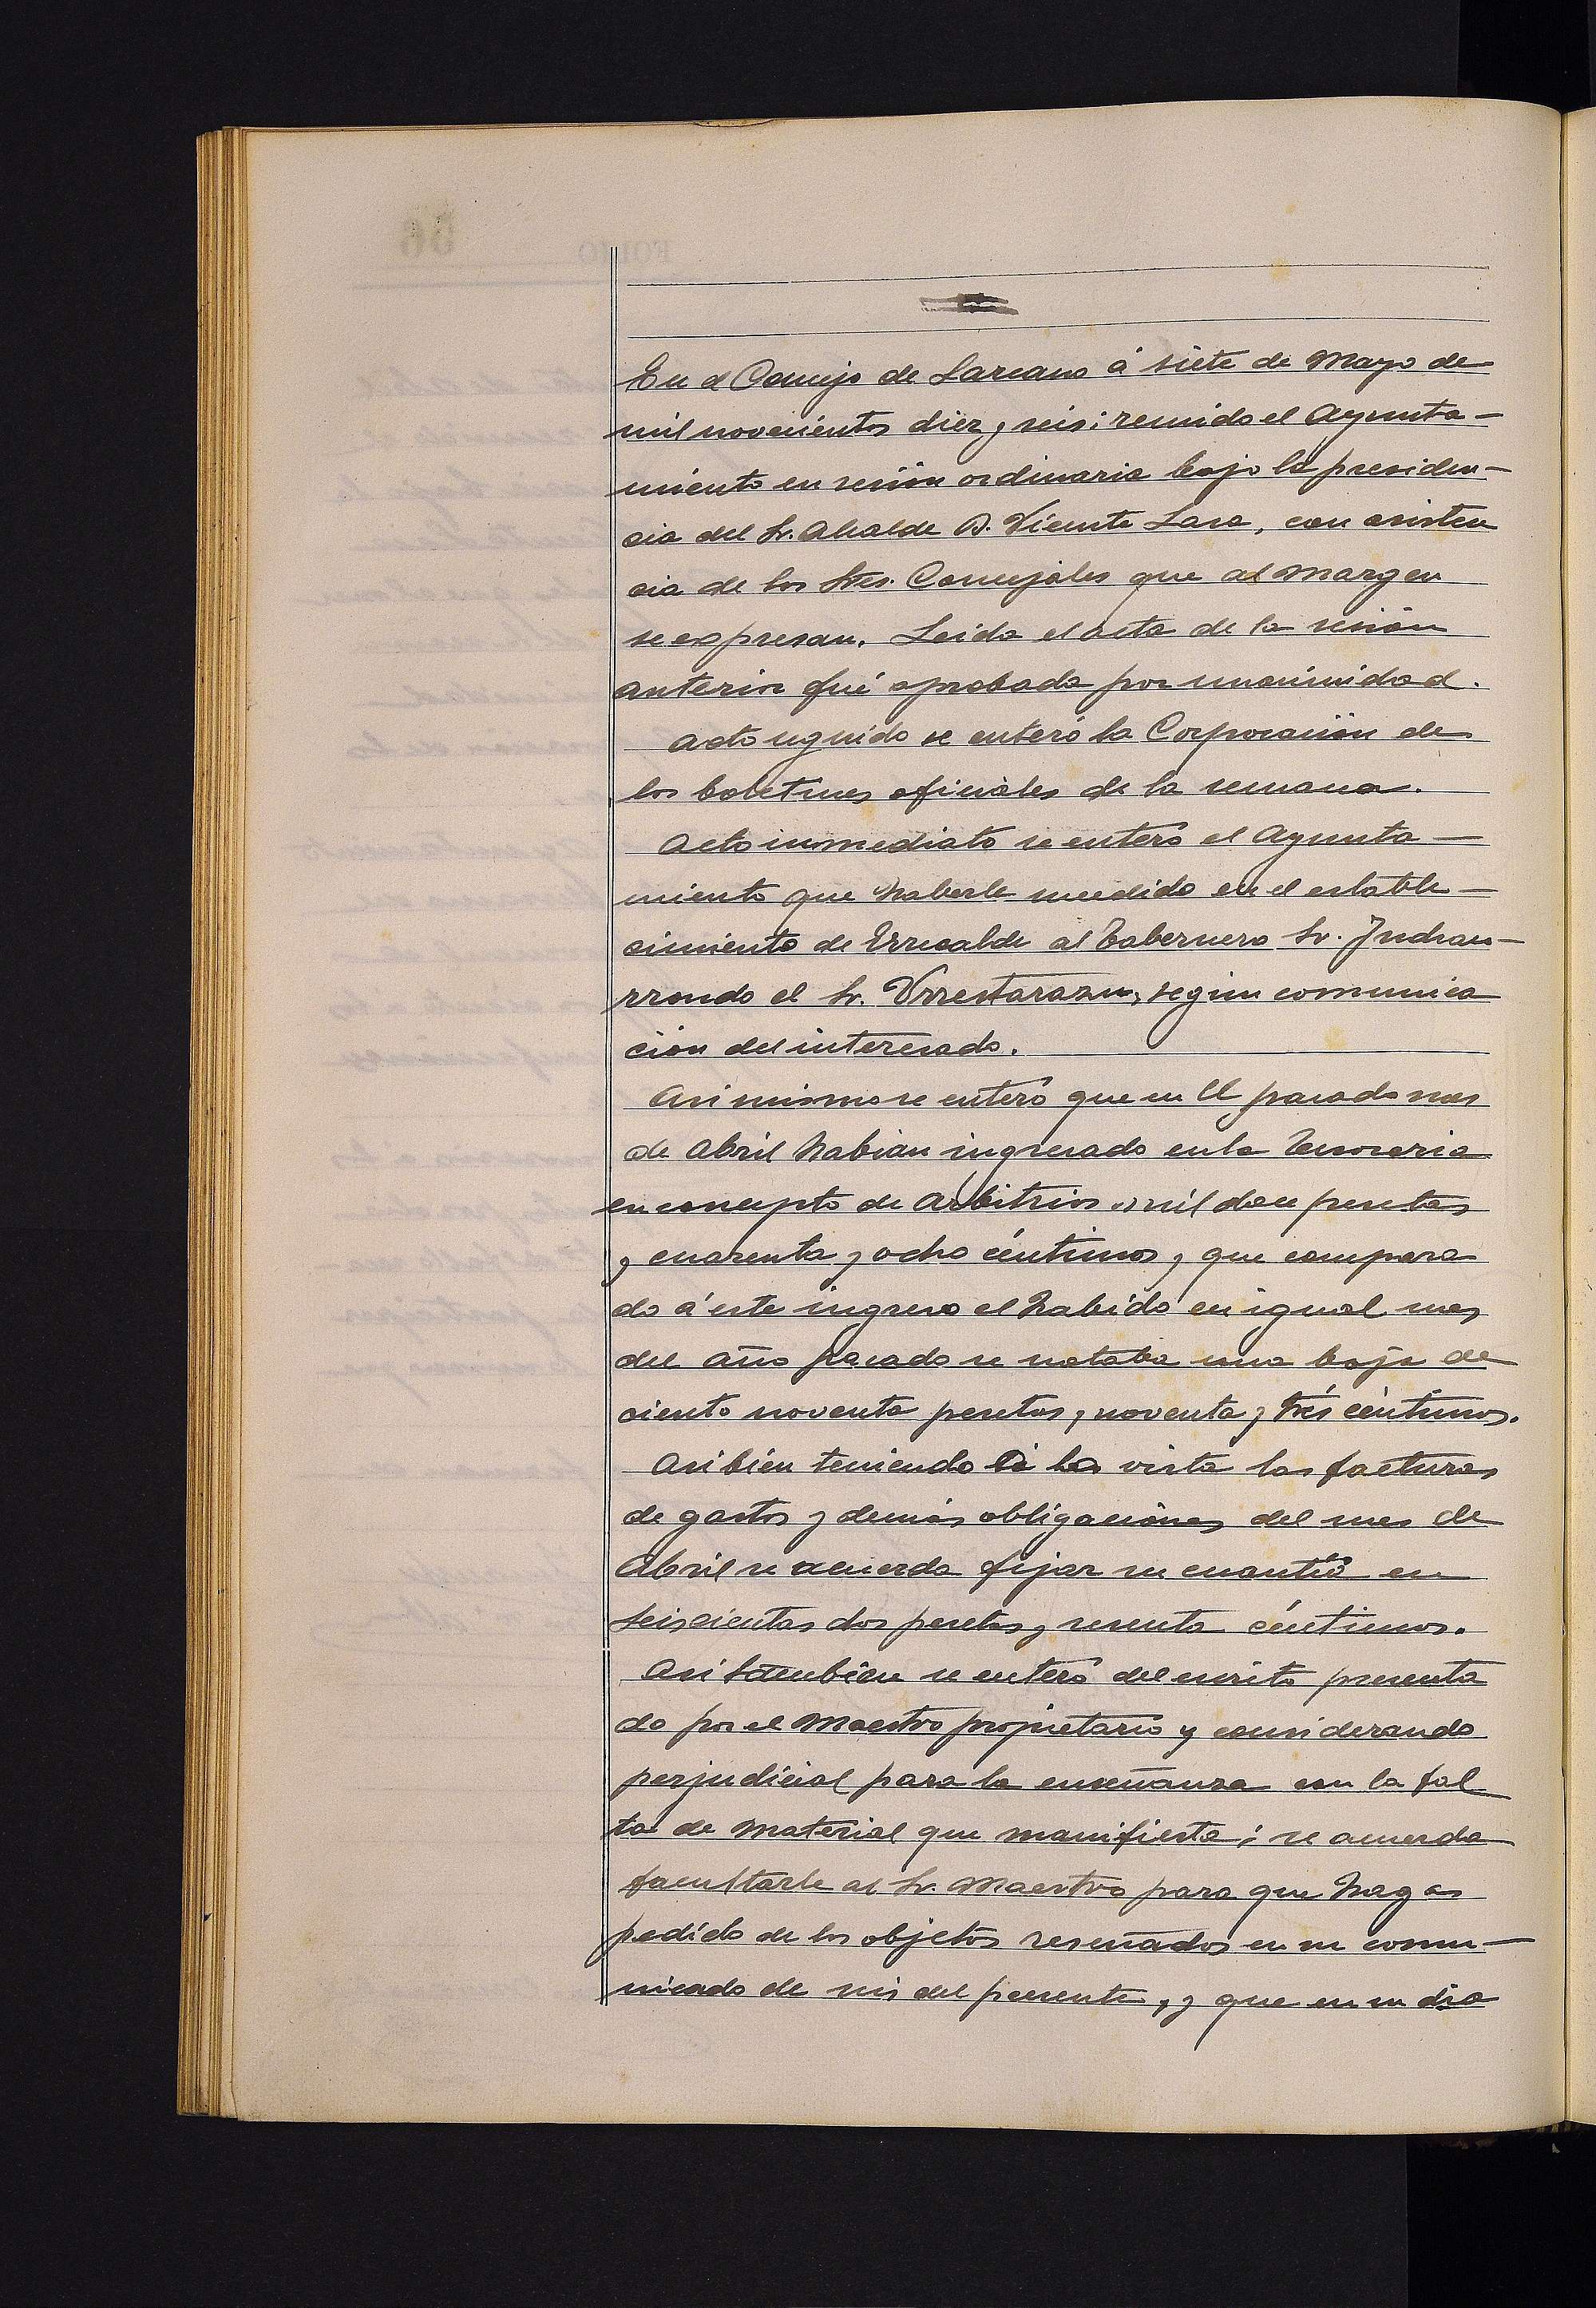 En el Concejo de Larcano á siete de Mayo de
mil novecientos diez y seis: reunido el Ayunta-
miento en sesión ordinaria bajo la presiden-
cia del Sr. Alcalde D. Vicente Lasa, con asisten
cia de los Stes. Concejales que al margen
se expresan. Leida el acta de la sesión
anterior fué aprobada por unanimidad.
Acto seguido se enteró la Corporación de
los boletines oficiales de la semana.
Acto inmediato se enteró el Ayunta-
miento que haberle sucedido en el estable-
cimiento de Errecalde al Tabernero Sr. Inchau-
rrondo el Sr. Urrestarazu, según comunica
ción del interesado.
Asi mismo se enteró que en El pasado mes
de Abril habian ingresado en la Tesoreria
en concepto de Arbitrios mil doce pesetas
y cuarenta y ocho céntimos, y que compara
do á este ingreso el habido en igual mes
del año pasado se notaba una baja de
ciento noventa pesetas, noventa y trés céntimos.
Asi bién teniendo á la vista las facturas
de gastos y demás obligaciónes del mes de
Abril se acuerda fijar su cuantia en
seiscientas dos pesetas y sesenta céntimos.
Asi tambien se enteró del escrito presenta
do por el Maestro propietario y considerando
perjudicial para la enseñanza con la fal
ta de material que manifiesta; se acuerda
facultarle al Sr. Maestro para que haga
pedido de los objetos reseñados en su comu-
nicado de seis del presente, y que en su dia